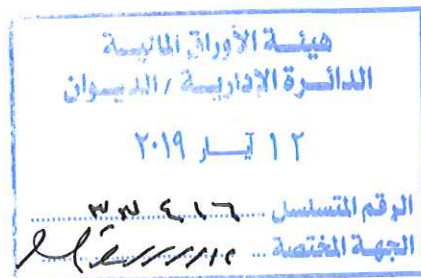 هيئـة الأوراق الماليـة
الدائـرة الإداريـة / الديـوان
١٢ آيـار ٢٠١٩
الرقم المتسلسل ٣٣٤١٦
الجهة المختصة